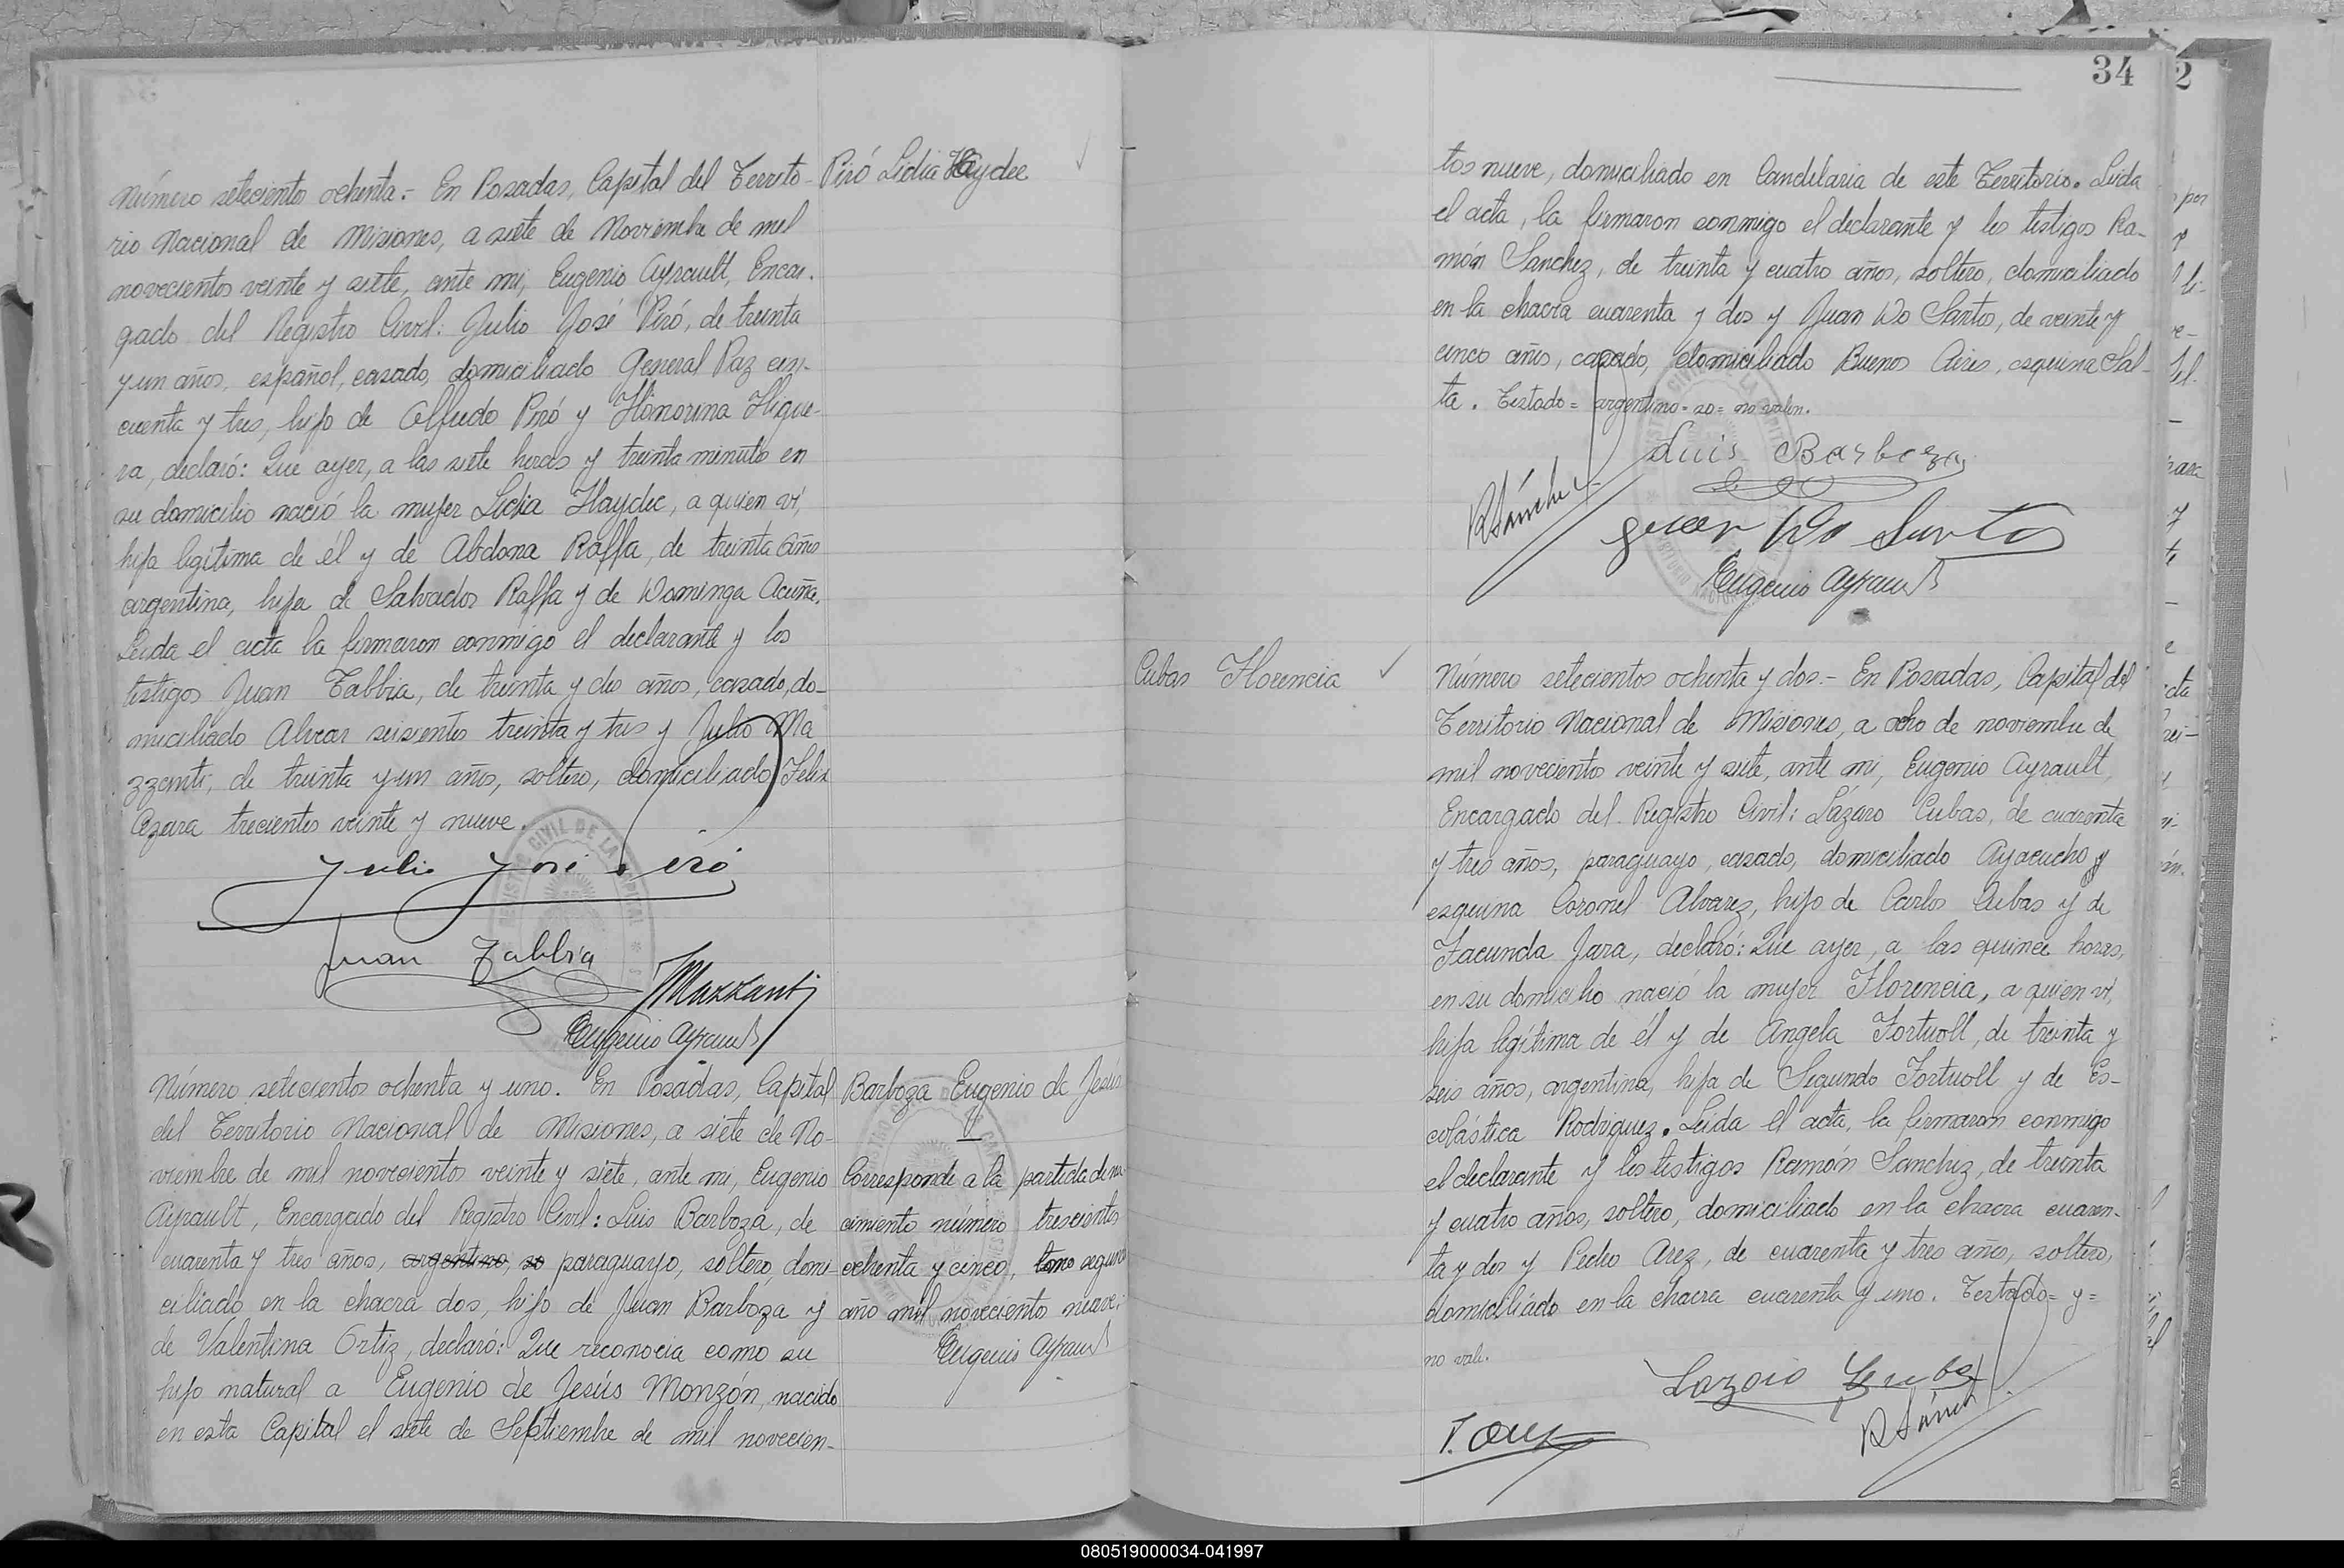 Número setecientos ochenta.- En Posadas, Capital del Territo-
rio Nacional de Misiones, a siete de Noviembre de mil
novecientos veinte y siete, ante mi, Eugenio Ayrault, Encar-
gado del Registro Civil: Julio José Piró, de treinta
y un años, español, casado, domiciliado General Paz cin-
cuenta y tres, hijo de Alfredo Piró y Honorina Higue-
ra, declaró: Que ayer, a las siete horas y treinta minutos en
su domicilio nació la mujer Lidia Haydee, a quien vi,
hija legítima de él y de Abdona Raffa, de treinta años
argentina, hija de Salvador Raffa y de Dominga Acuña.
Leida el acta la firmaron conmigo el declarante y los
testigos Juan Tabbia, de treinta y dos años, casado, do-
miciliado Alvear seiscientos treinta y tres y Julio Ma
zzanti, de treinta y un años, soltero, domiciliado Felix
Azara trecientos veinte y nueve.
Piró Lidia Haydee
Julio José Piró
Juan Tabbia
JMazzanti
Eugenio Ayrault
Número setecientos ochenta y uno. En Posadas, Capital
del Territorio Nacional de Misiones, a siete de No-
viembre de mil novecientos veinte y siete, ante mi, Eugenio
Ayrault, Encargado del Registro Civil: Luis Barboza, de
cuarenta y tres años, argentino, so paraguayo, soltero, domi-
ciliado en la chacra dos, hijo de Juan Barboza y
de Valentina Ortiz, declaró: Que reconocia como su
hijo natural a Eugenio de Jesús Monzón, nacido
en esta Capital el siete de Septiembre de mil novecien-
Barboza Eugenio de Jesús
Corresponde a la partida de na
cimiento número trescientos
ochenta y cinco, tomo segundo
año mil noveciento nueve.
Eugenio Ayrault
34
tos nueve, domiciliado en Candelaria de este Territorio. Leida
el acta, la firmaron conmigo el declarante y los testigos Ra-
món Sanchez, de treinta y cuatro años, soltero, domiciliado
en la chacra cuarenta y dos y Juan Do Santos, de veinte y
cinco años, casado, domiciliado Buenos Aires, esquina Sal-
ta. Testado= argentino= so= no valen.
Luis Barboza
RSánchez
Juan Do Santos
Eugenio Ayrault
Cubas Florencia
Número setecientos ochenta y dos.- En Posadas, Capital del
Territorio Nacional de Misiones, a ocho de noviembre de
mil novecientos veinte y siete, ante mi, Eugenio Ayrault,
Encargado del Registro Civil: Lázaro Cubas, de cuarenta
y tres años, paraguayo, casado, domiciliado Ayacucho y
esquina Coronel Alvarez, hijo de Carlos Cubas y de
Facunda Jara, declaró: Que ayer, a las quince horas,
en su domicilio nació la mujer Florencia, a quien vi,
hija legítima de él y de Angela Fortuoll, de treinta y
seis años, argentina, hija de Segundo Fortuoll y de Es-
colástica Rodriguez. Leida el acta, la firmaron conmigo
el declarante y los testigos Ramón Sanchez, de treinta
y cuatro años, soltero, domiciliado en la chacra cuaren-
ta y dos y Pedro Arez, de cuarenta y tres años, soltero,
domiciliado en la chacra cuarenta y uno. Testado= y=
no vale.
Lazaro Cubas
RSánch
080519000034-041997